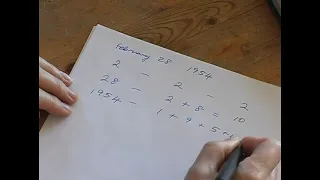 February 28 1954
2 - 2 - 2
28 - 2 + 8 = 10
1954 - 1 + 9 + 5 + 4